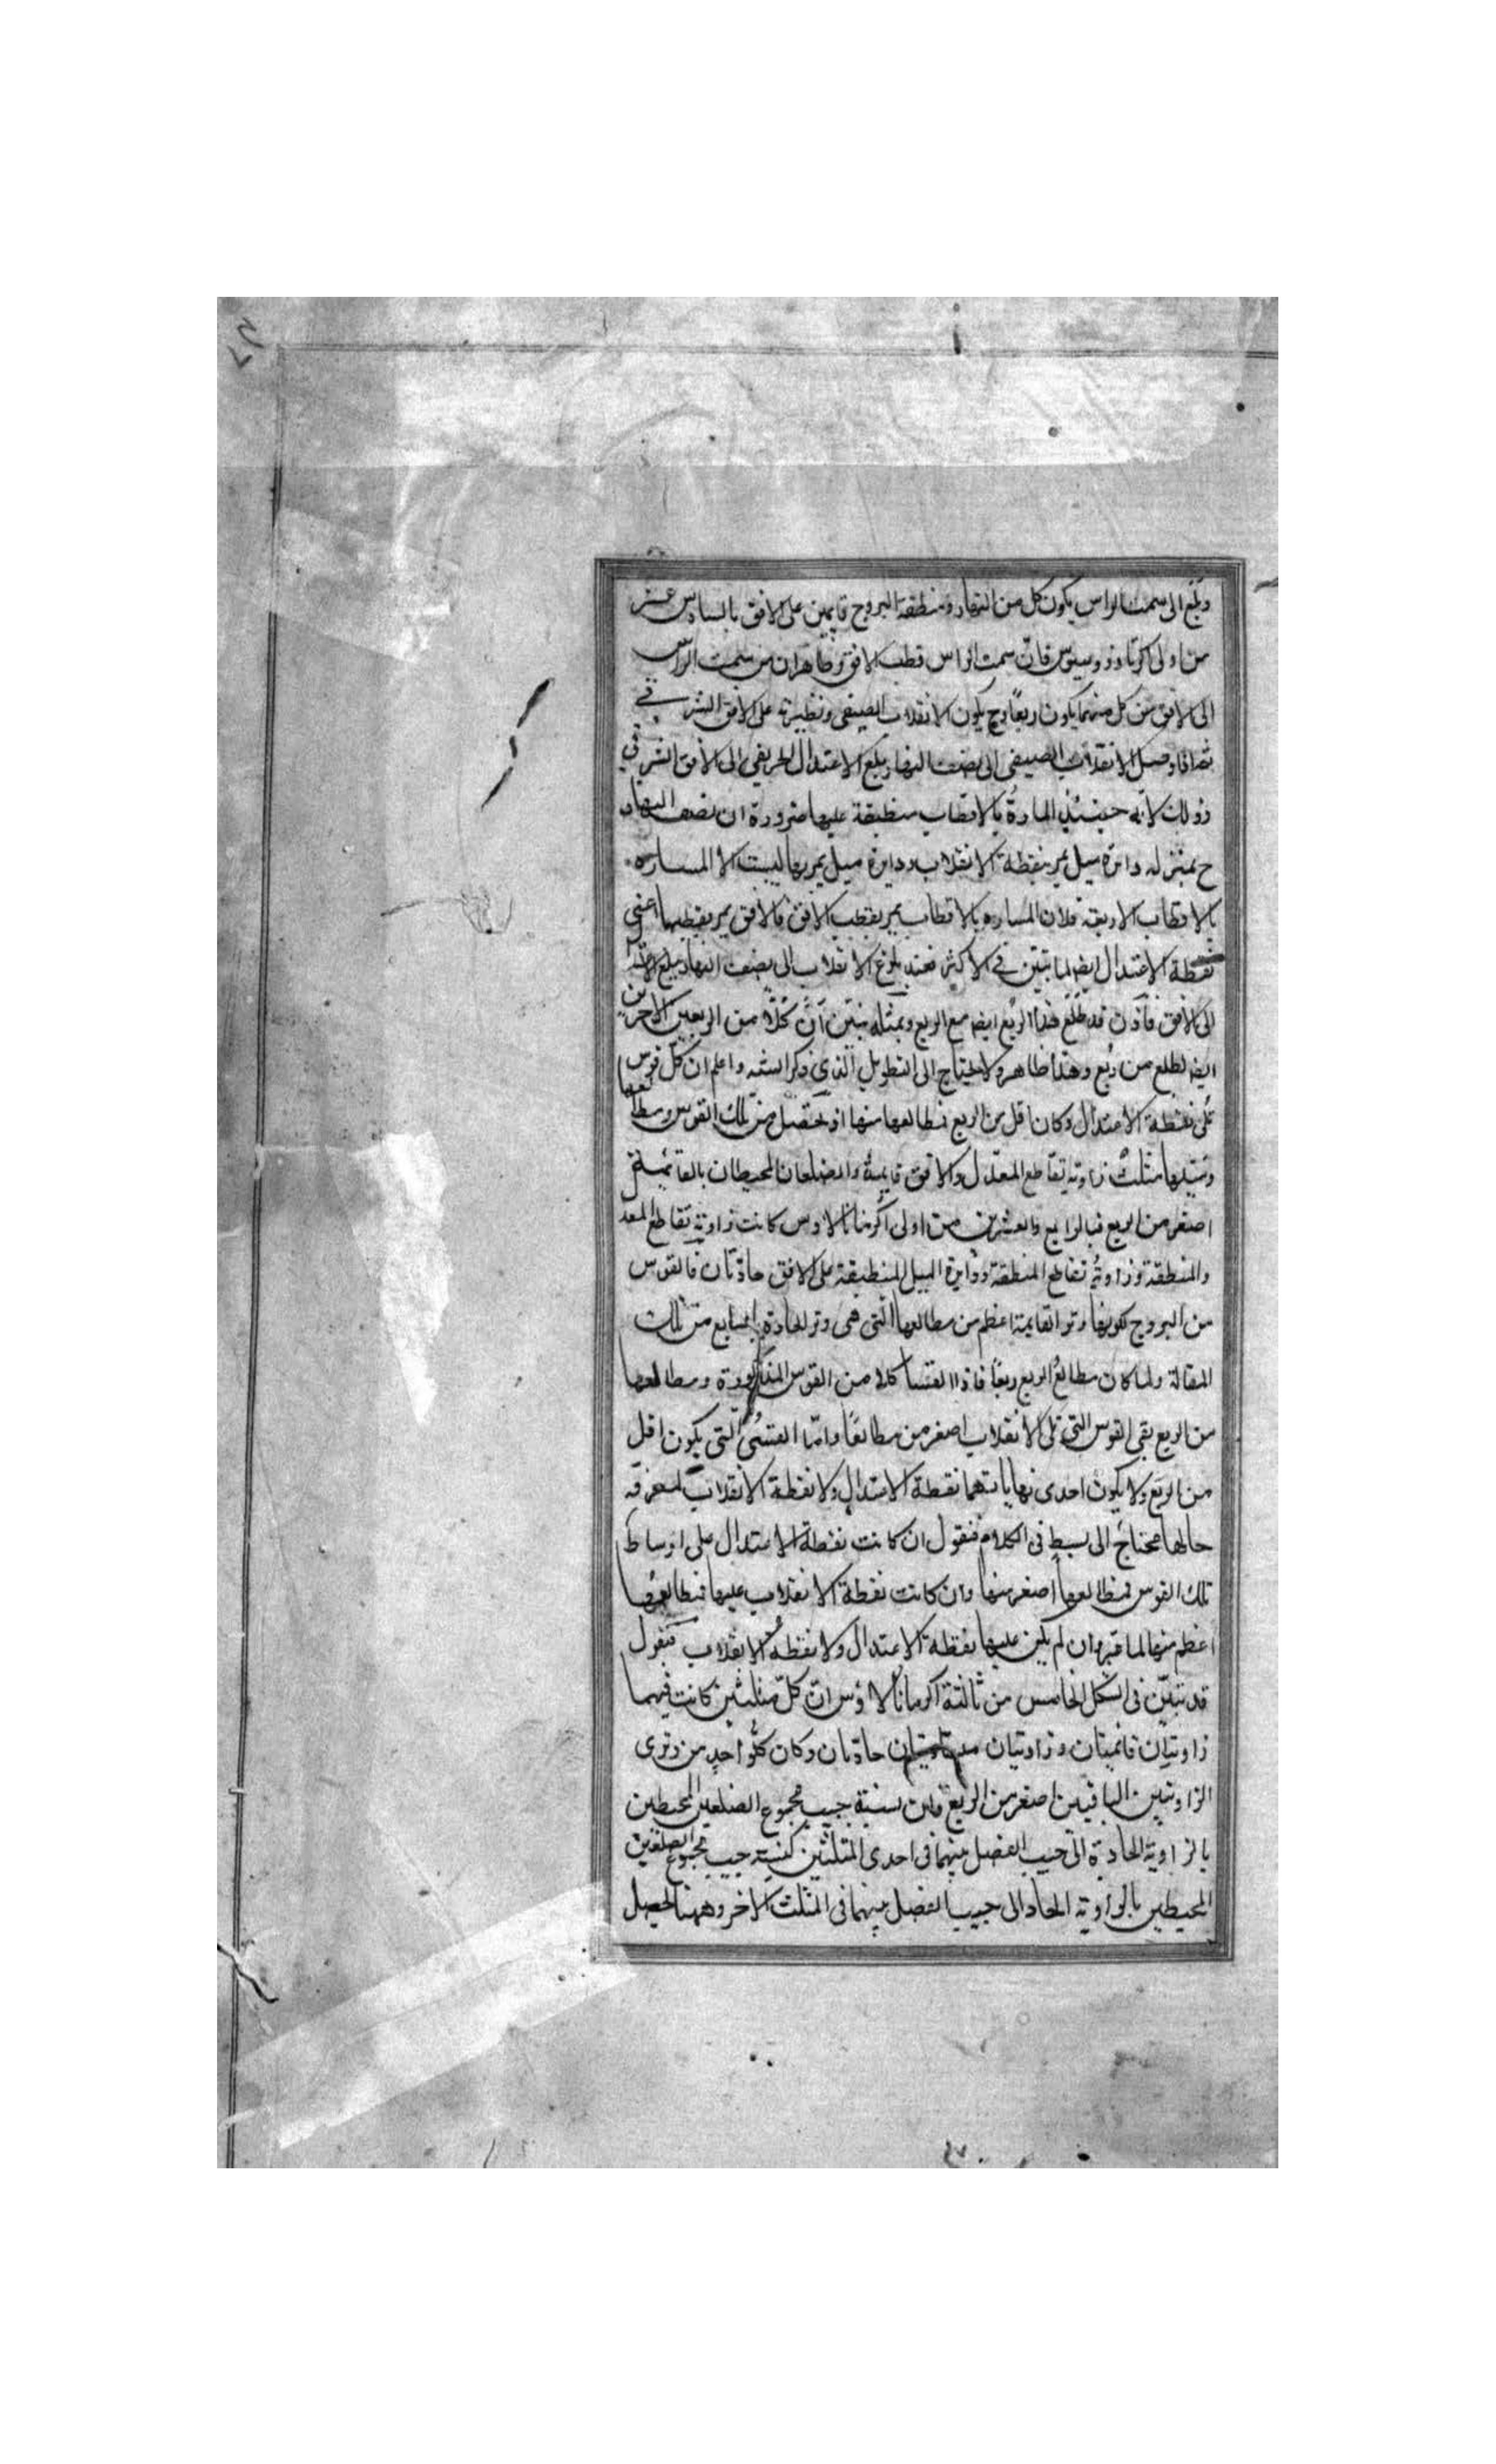 وبلغ الى سمت الراس يكون كل من النهار ومنطقة البروج قايمين على الافق بالسادس عشر
من اولى اكر ثاوذوسيوس فان سمت الراس قطب الافق وظاهر ان من سمت الراس
الى الافق من كل منهما يكون ربعا وح يكون الانقلاب الصيفى ونظيرته على الافق الشرقى
ثم اذا وصل الانقلاب الصيفى الى نصف النهار وبلغ الاعتدال الخريفى الى الافق الشرقى
وذلك لانه حينئذ المارة بالاقطاب منطبقة عليها ضرورة ان نصف النهار
ح بمنزله دائرة ميل يمر بنقطة الانقلاب ودايرة ميل يمر بها ليست الا المساره
بالاقطاب الاربعة فلان المساره بالاقطاب يمر بقطب الافق فالافق يمر بقطبها اعنى
نقطة الاعتدال ايضا لما تبين فى الاكثر فعند بلوغ الانقلاب الى نصف النهار يبلغ الاعتدال
الى الافق فاذن قد طلع هذا الربع ايضا مع الربع وبمثله يتبين ان كلا من الربعين الاخرين
ايضا يطلع من ربع وهذا ظاهر ولا يحتاج الى التطويل الذى ذكر الشه واعلم ان كل قوس
تلى نقطة الاعتدال وكان اقل من الربع فمطالعها منها اذ يحصل من تلك القوس ومطالعها
وميلها مثلث زاوية تقاطع المعدل والافق قايمة والضلعان المحيطان بالقائمة
اصغر من الربع فبالرابع والعشرين من اولى اكر مانالاوس كانت زاوية تقاطع المعدل
والمنطقة وزاوية تقاطع المنطقة ودايرة الميل المنطبقة على الافق حادتان فالقوس
من البروج لكونها وتر القايمة اعظم من مطالعها التى هى وتر الحادة بالسابع من تلك
المقالة ولما كان مطالع الربع ربعا فاذا القينا كلا من القوس المذكورة ومطالعها
من الربع بقى القوس التى تلى الانقلاب اصغر من مطالعها واما القسى التى يكون اقل
من الربع ولا يكون احدى نهاياتهما نقطة الاعتدال ولا نقطة الانقلاب لمعرفة
حالها محتاج الى بسط فى الكلام فنقول ان كانت نقطة الاعتدال على اوساط
تلك القوس فمطالعها اصغر منها وان كانت نقطة الانقلاب عليها فمطالعها
اعظم منها لما مر وان لم يكن عليها نقطة الاعتدال ولا نقطة الانقلاب فنقول
قد تبين فى الشكل الخامس من ثالثة اكر مانالاوس ان كل مثلثين كانت فيهما
زاويتان قائمتان وزاويتان حادتان وكان كل واحد من وترى
الزاويتين الباقيتين اصغر من الربع فان نسبة جيب مجموع الضلعين المحيطين
بالزاوية الحادة الى جيب الفضل بينهما فى احدى المثلثين كنسبة جيب مجموع الضلعين
المحيطين بالزاوية الحاد الى جيب الفضل بينهما فى المثلث الاخر وههنا يحصل